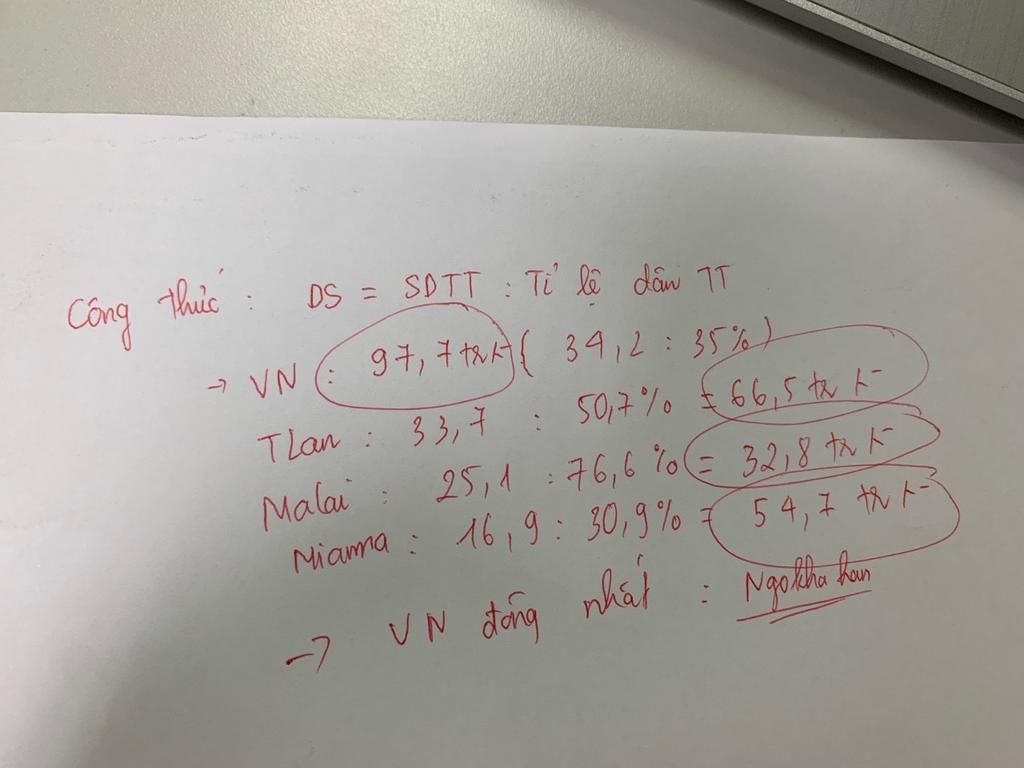 Công thức : DS = SDTT : Tỉ lệ dân TT
→ VN : 97,7 tr k ( 34,2 : 35% )
TLan : 33,7 : 50,7% = 66,5 tr k
Malai : 25,1 : 76,6% = 32,8 tr k
Mianma : 16,9 : 30,9% = 54,7 tr k
→ VN đông nhất : Ngokhahan